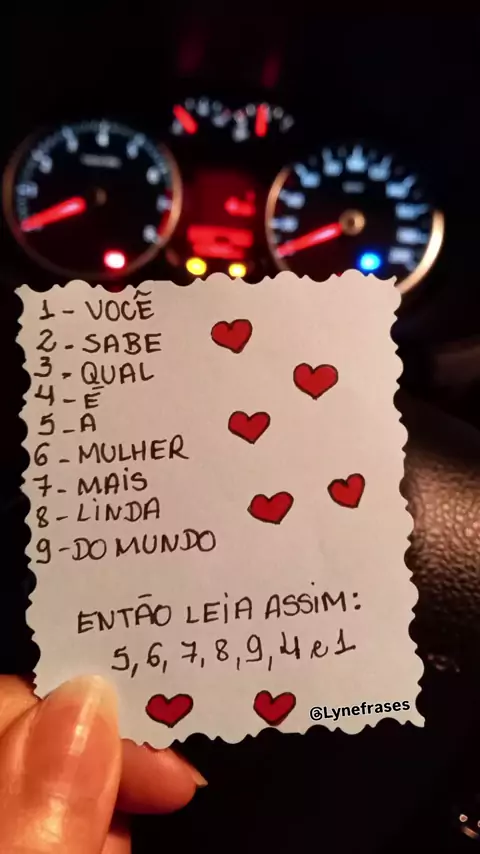 1 - VOCÊ
2 - SABE
3 - QUAL
4 - É
5 - A
6 - MULHER
7 - MAIS
8 - LINDA
9 - DO MUNDO
ENTÃO LEIA ASSIM:
5, 6, 7, 8, 9, 4 e 1
@Lynefrases